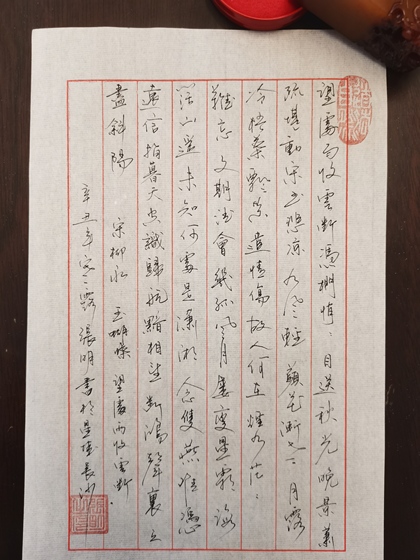 望處雨收雲斷憑欄悄々目送秋光晚景蕭
疏堪動宋玉悲涼水風輕蘋花漸老月露
冷梧葉飄黃遣情傷故人何在煙水茫々
難忘文期酒會幾孤風月屢變星霜海
闊山遙未知何處是瀟湘念雙燕難憑
遠信指暮天空識歸航黯相望斷鴻聲裏立
盡斜陽 宋柳永 玉蝴蝶 望處雨收雲斷
辛丑年寒露張明書於星城長沙